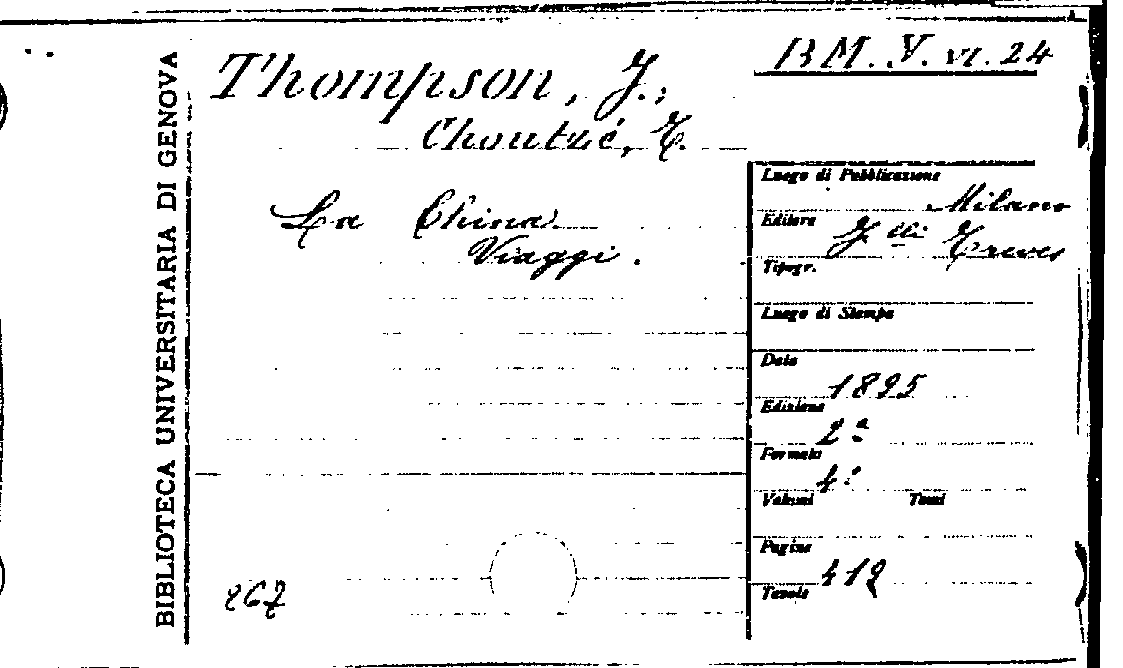 BIBLIOTECA UNIVERSITARIA DI GENOVA
Thompson, J.,
Choutzé, T.
La China.
Viaggi.
267
B M. V. VI. 24
Luogo di Pubblicazione
Milano
Editore
F.lli Treves
Tipogr.
Luogo di Stampa
Data
1895
Edizione
2ª
Formato
4°
Volumi Tomi
Pagine
412
Tavole